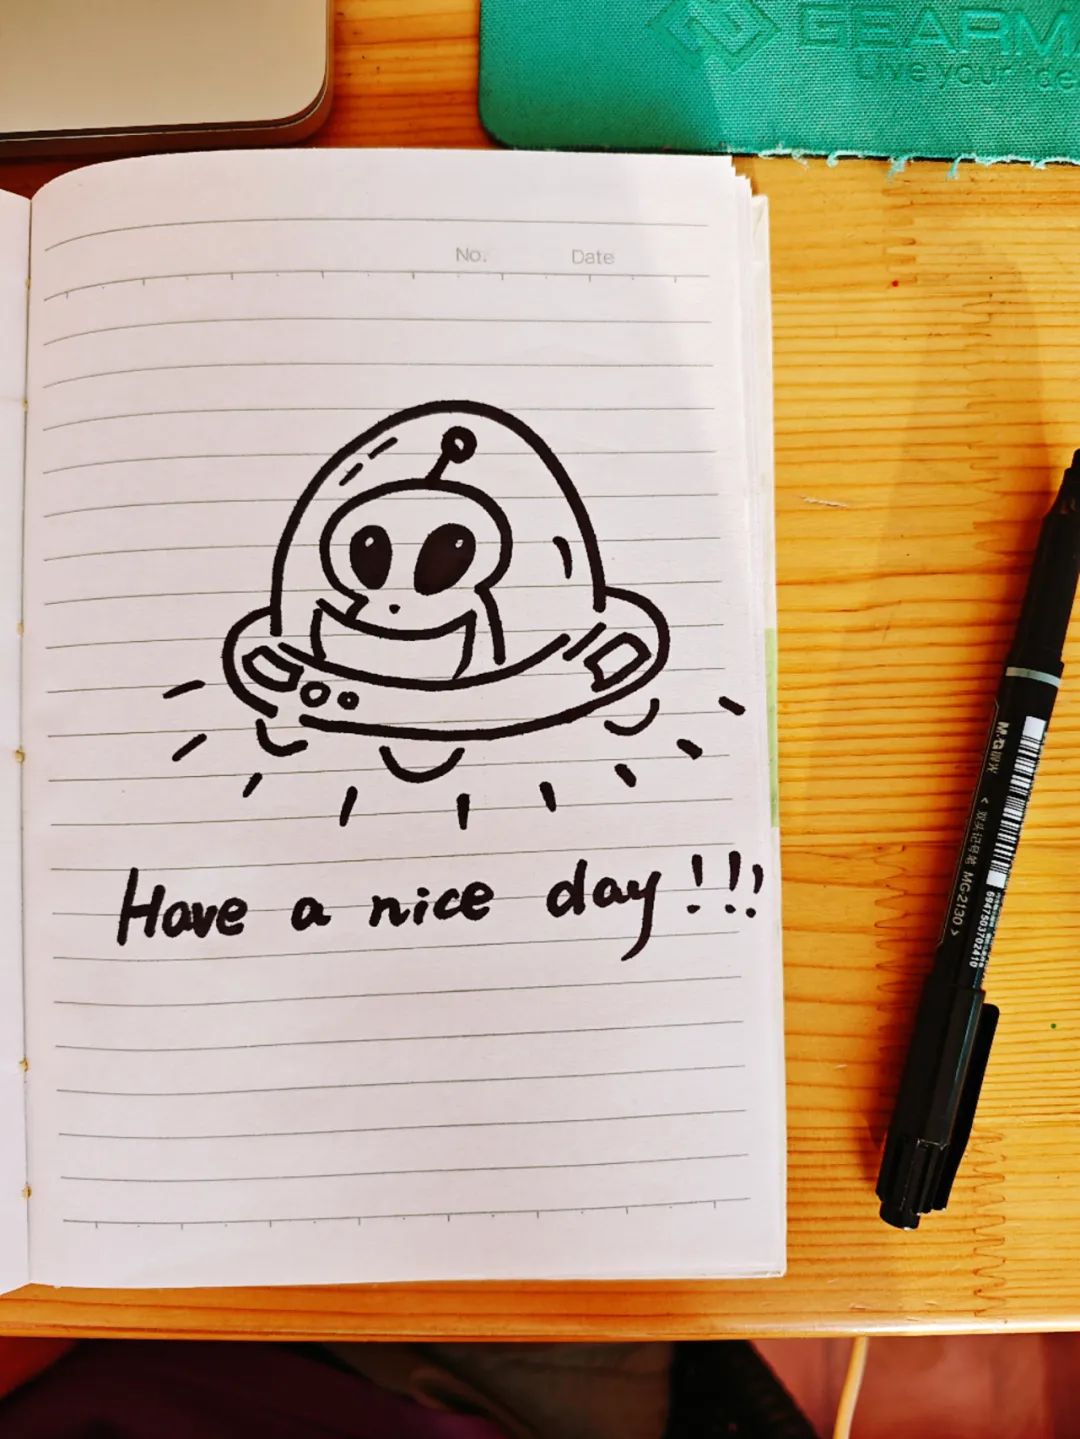 GEARMA
Live your ide
No.
Date
Have a nice day!!!
M&G 晨光
<双头记号笔 MG-2130>
6947503702410